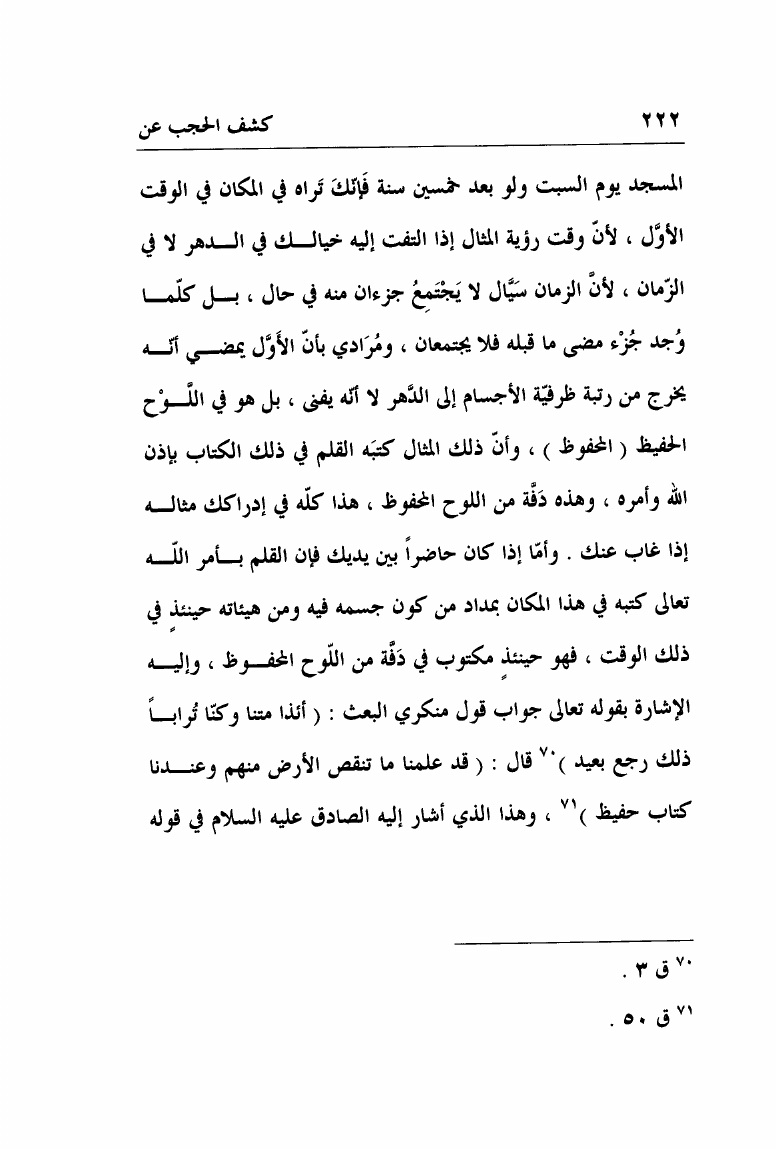 ٢٢٢ كشف الحجب عن
المسجد يوم السبت ولو بعد خمسين سنة فَإنّكَ تَراه في المكان في الوقت
الأوَّل ، لأنّ وقت رؤية المثال إذا التفت إليه خيالـــك في الـــدهر لا في
الزّمان ، لأنَّ الزمان سَيَّال لا يَجْتَمِعُ جزءان منه في حال ، بـــل كلّمـــا
وُجد جُزْء مضى ما قبله فلا يجتمعان ، ومُرَادي بأنّ الأَوَّل يمضـــي أنّـــه
يخرج من رتبة ظرفيّة الأجسام إلى الدَّهر لا أنّه يفنى ، بل هو في اللَّـــوْح
الحفيظ ( المحفوظ ) ، وأنّ ذلك المثال كتبَه القلم في ذلك الكتاب بإذن
الله وأمره ، وهذه دَفَّة من اللوح المحفوظ ، هذا كلّه في إدراكك مثالـــه
إذا غاب عنك . وأمّا إذا كان حاضراً بين يديك فإن القلم بـــأمر اللّـــه
تعالى كتبه في هذا المكان بمداد من كون جسمه فيه ومن هيئاته حينئذٍ في
ذلك الوقت ، فهو حينئذٍ مكتوب في دَفَّة من اللّوح المحفـــوظ ، وإليـــه
الإشارة بقوله تعالى جواب قول منكري البعث : ( أئذا متنا وكنّا تُرابـــاً
ذلك رجع بعيد )٧٠ قال : ( قد علمنا ما تنقص الأرض منهم وعنـــدنا
كتاب حفيظ )٧١ ، وهذا الذي أشار إليه الصادق عليه السلام في قوله
٧٠ ق ٣ .
٧١ ق ٥٠ .